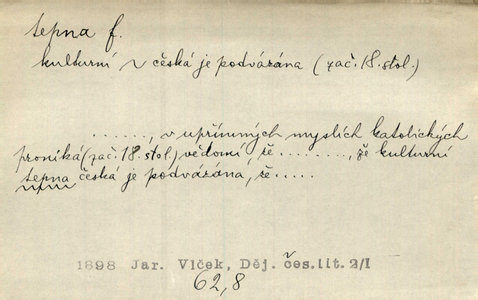 tepna f.
kulturní ~ česká je podvázána (zač. 18. stol.)
........, v upřímných myslích katolických
proniká (zač. 18. stol.) vědomí, že ........, že kulturní
tepna česká je podvázána, že .....
1898 Jar. Vlček, Děj. čes. lit. 2/I
62,8